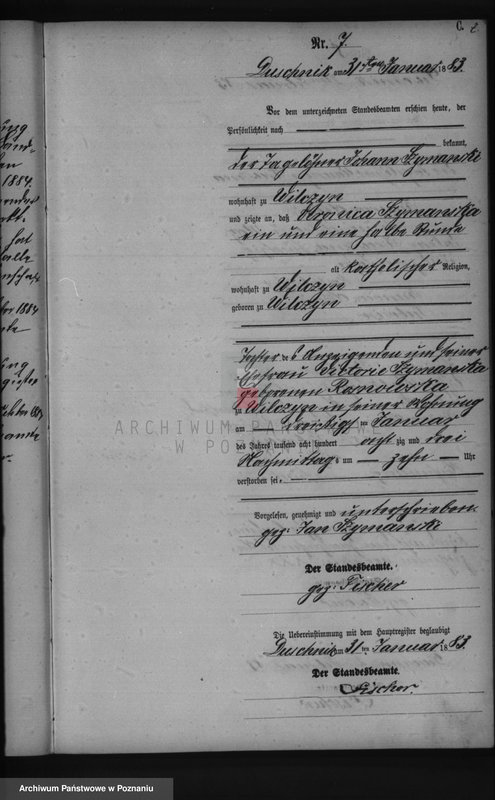 C. 2
Nr. 7.
Duschnik am 31ten Januar 1883.
Vor dem unterzeichneten Standesbeamten erschien heute, der
Persönlichkeit nach
bekannt,
der Tagelöhner Johann Szymanski
wohnhaft zu Wilczyn
und zeigte an, daß Szymanska
ein und eine halbe Stunde
alt katholischer Religion,
wohnhaft zu Wilczyn
geboren zu Wilczyn
Tochter des Anzeigenden und seiner
Ehefrau Victoria Szymanska
geborenen Rosnowska
zu Wilczyn in seiner Wohnung
am dreißigsten Januar
des Jahres tausend acht hundert acht zig und drei
Nachmittags um zehn Uhr
verstorben sei.
Vorgelesen, genehmigt und unterschrieben
gez: Jan Szymanski
Der Standesbeamte.
gez: Fischer
Die Uebereinstimmung mit dem Hauptregister beglaubigt
Duschnik am 31ten Januar 1883.
Der Standesbeamte.
Fischer.
ARCHIWUM PAŃSTWOWE
W POZNANIU
Archiwum Państwowe w Poznaniu